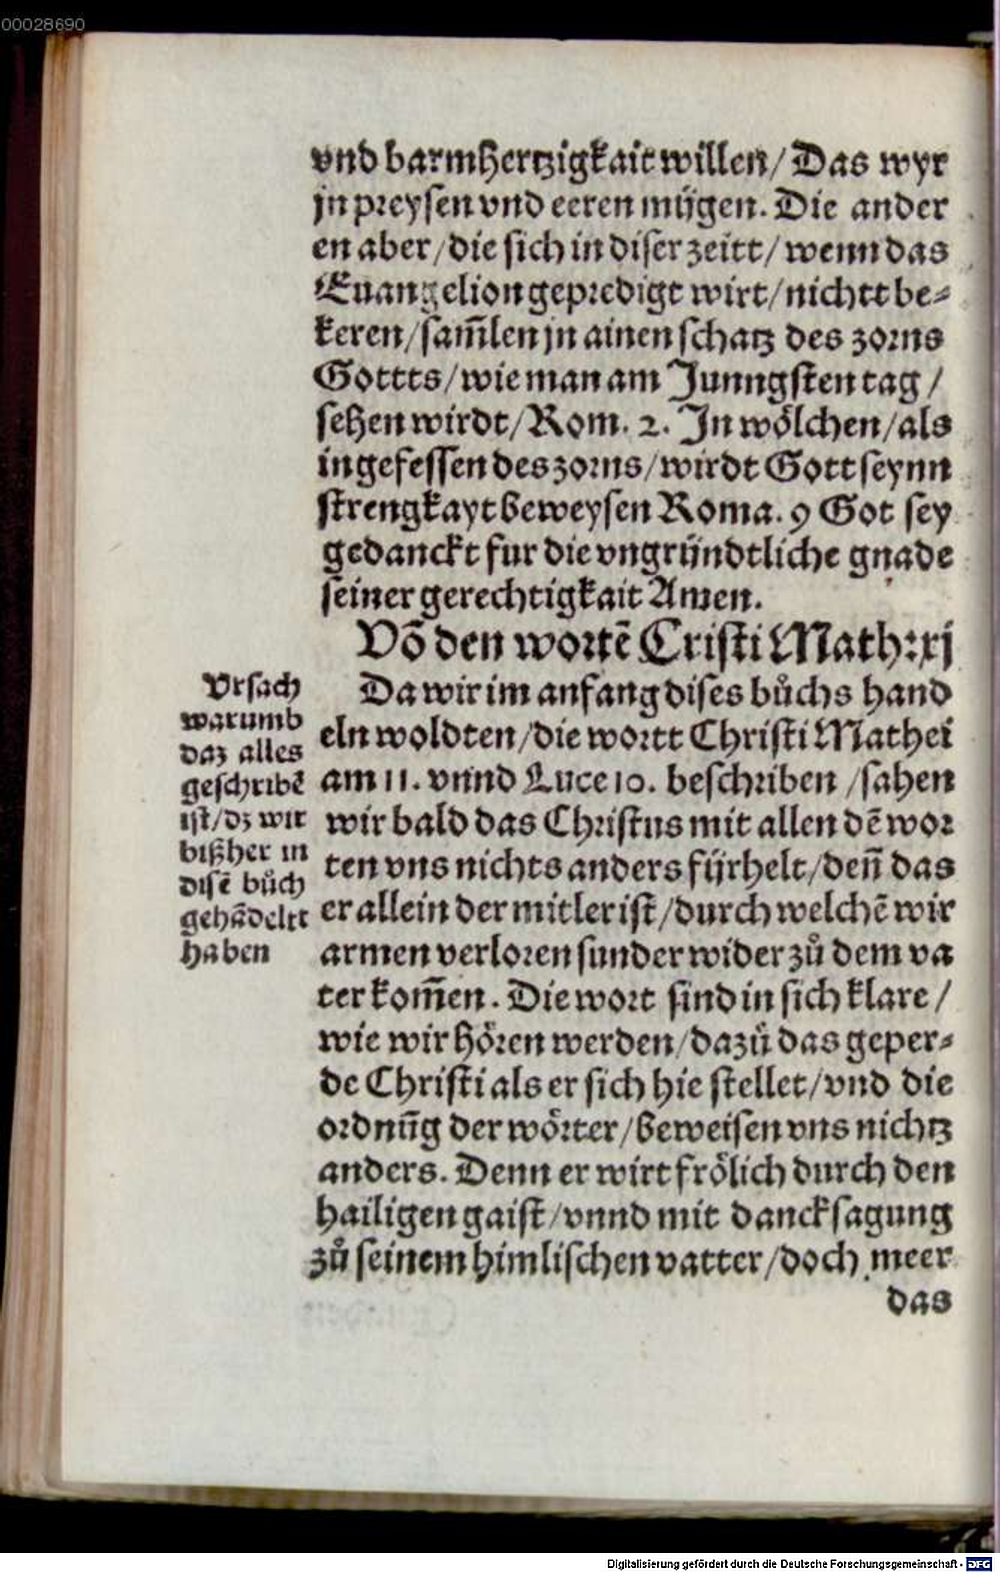 00028690
vnd barmhertzigkait willen/ Das wyr
jn preysen vnd eeren mügen. Die ander
en aber/die sich in diser zeitt/ wenn das
Euangelion gepredigt wirt/nichtt be⸗
keren/sam̄len jn ainen schatz des zorns
Gottts/wie man am Junngsten tag /
sehen wirdt/Rom. 2. Jn wölchen/als
in gefessen des zorns/wirdt Gott seynn
strengkayt beweysen Roma. 9 Got sey
gedanckt fur die vngründtliche gnade
seiner gerechtigkait Amen.
Võ den wortẽ Cristi Math:xj
Vrsach
warumb
daz alles
geschribẽ
ist/dz wir
bißher in
disẽ bůch
gehãdeltt
haben
Da wir im anfang dises bůchs hand
eln woldten/die wortt Christi Mathei
am 11. vnnd Luce 10. beschriben /sahen
wir bald das Christus mit allen dẽ wor
ten vns nichts anders fürhelt/deñ das
er allein der mitler ist/durch welchẽ wir
armen verloren sunder wider zů dem va
ter kom̄en. Die wort sind in sich klare /
wie wir hören werden/dazů das geper⸗
de Christi als er sich hie stellet/vnd die
ordnũg der wörter/beweisen vns nichtz
anders. Denn er wirt frölich durch den
hailigen gaist/vnnd mit dancksagung
zů seinem himlischen vatter/doch meer
das
Digitalisierung gefördert durch die Deutsche Forschungsgemeinschaft - DFG